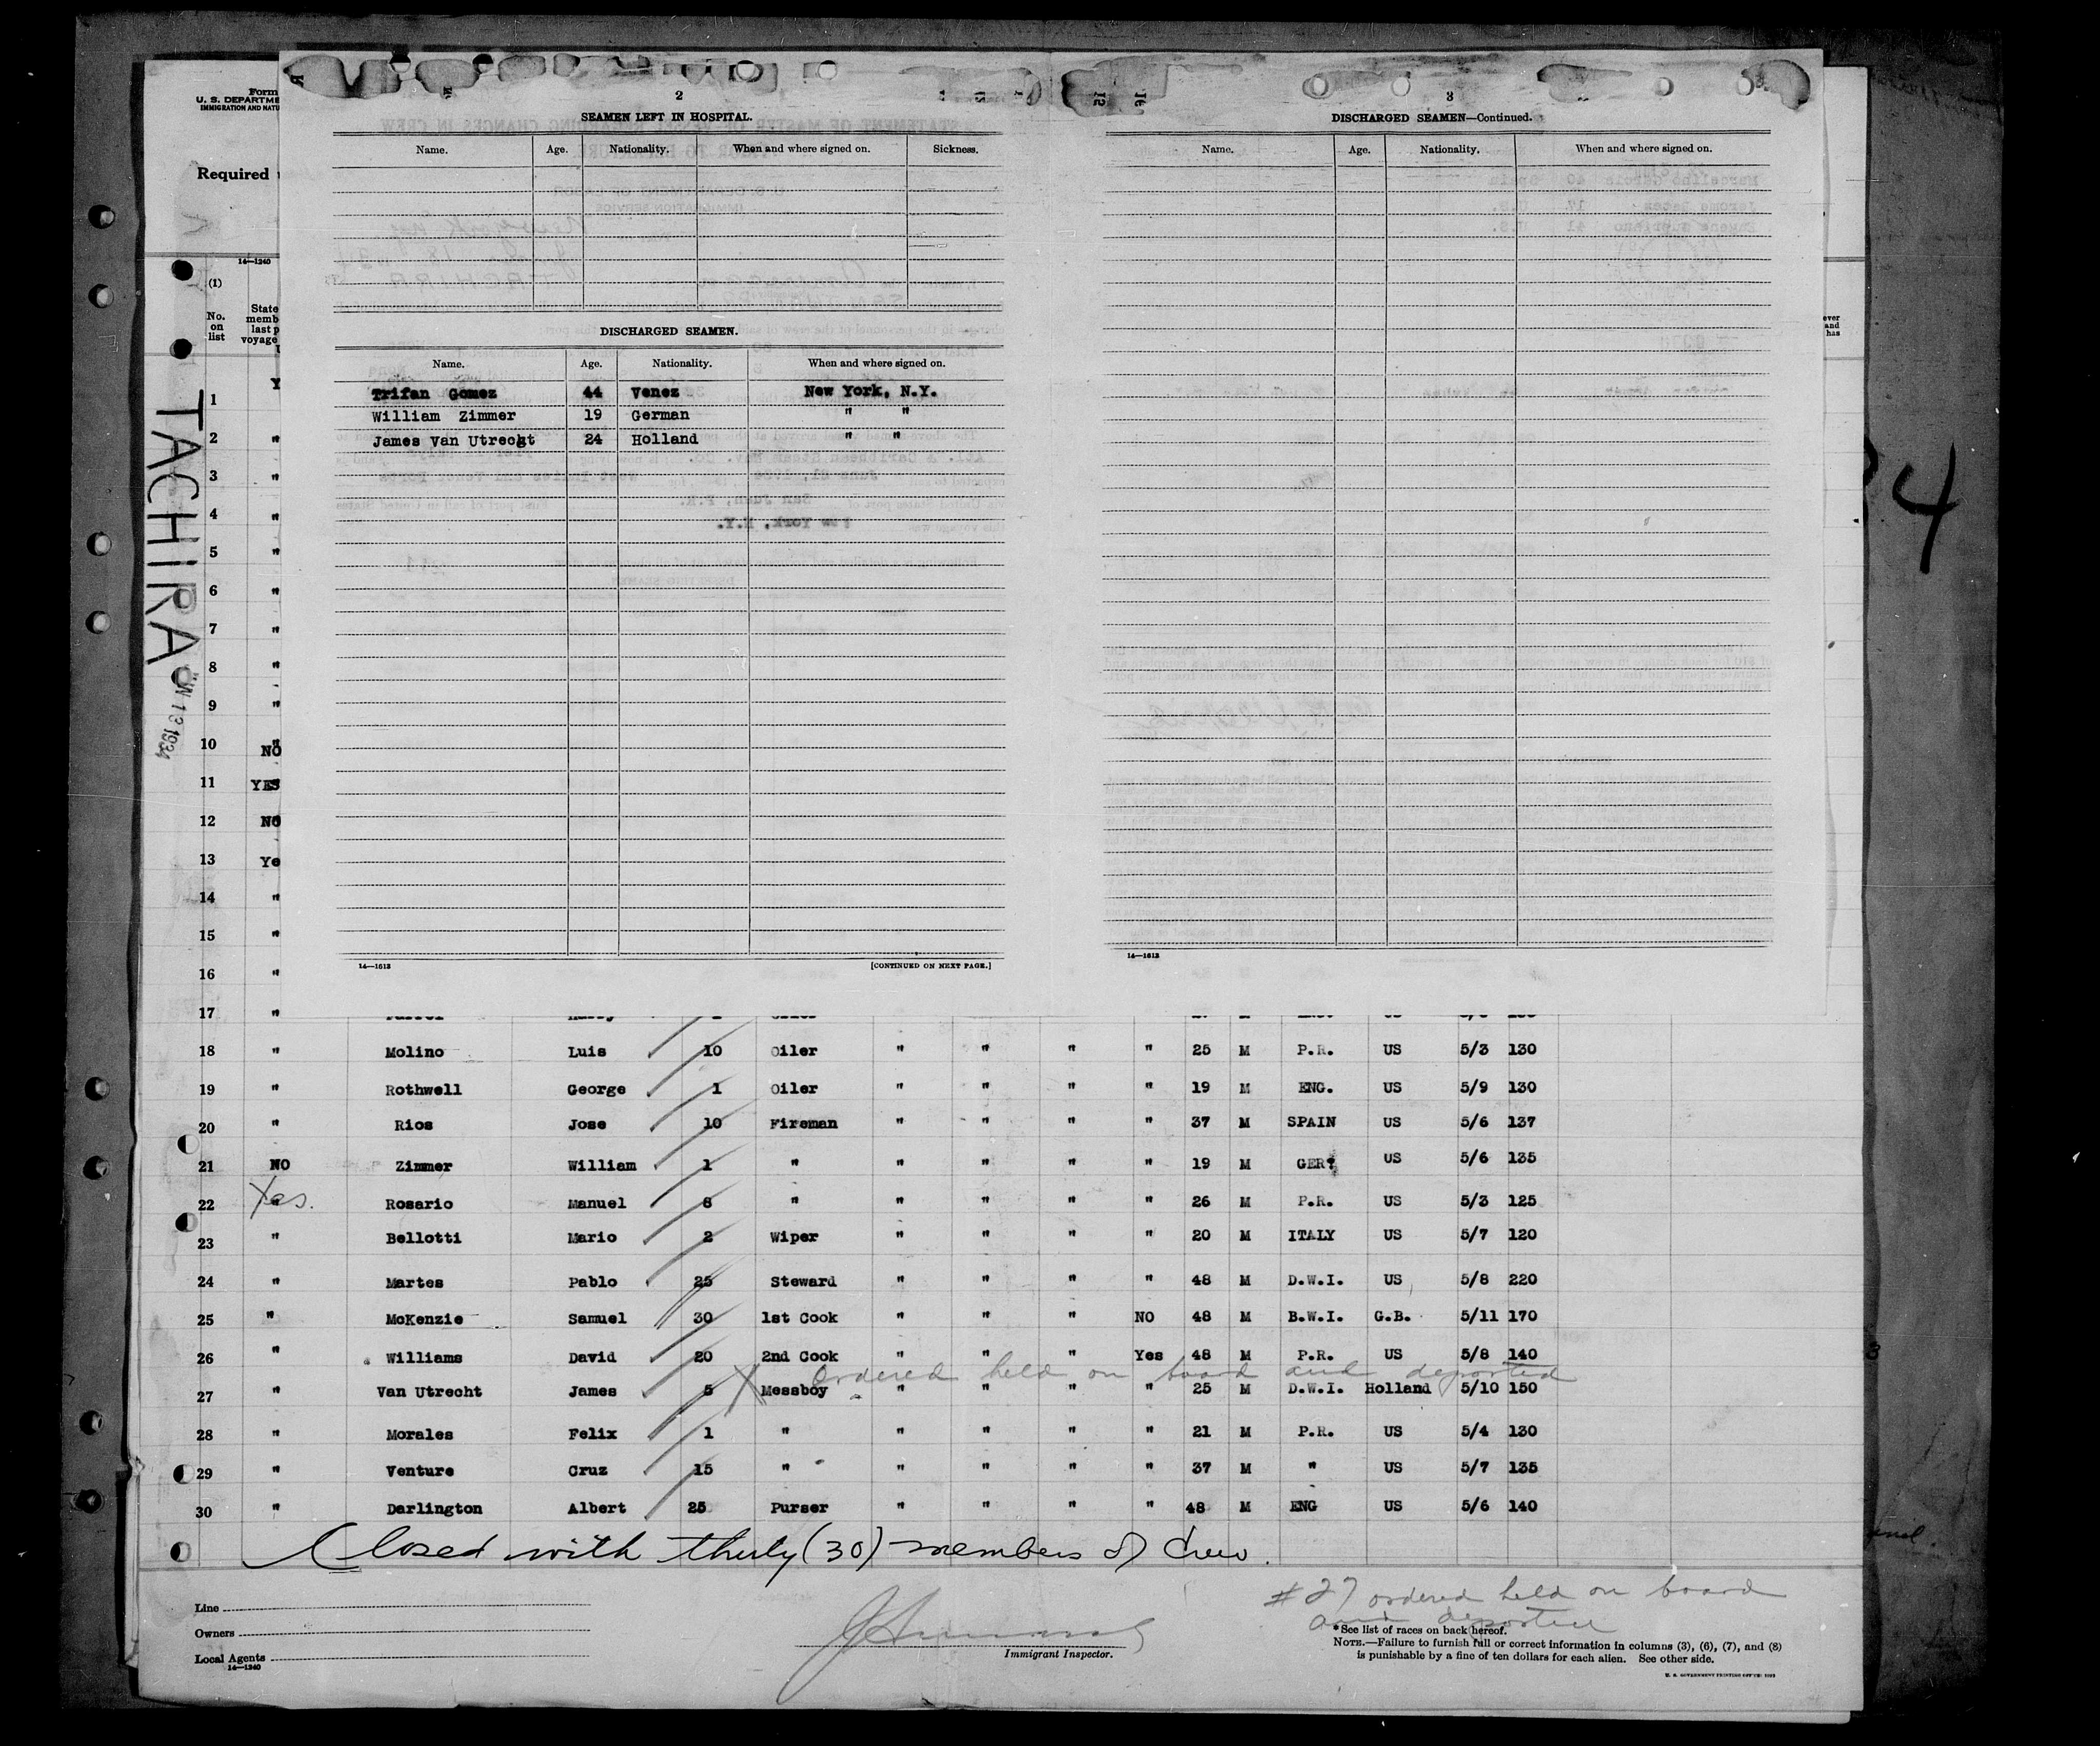 Form
U. S. DEPARTME
IMMIGRATION AND NATU
Required
14—1240
(1)
No. on list
State
memb
last p
voyage
TACHIRA
13 1934
2
SEAMEN LEFT IN HOSPITAL.
Name. Age. Nationality. When and where signed on. Sickness.
DISCHARGED SEAMEN.
Name. Age. Nationality. When and where signed on.
Trifan Gomez 44 Venez New York, N.Y.
William Zimmer 19 German " "
James Van Utrecht 24 Holland " "
14—1613 [CONTINUED ON NEXT PAGE.]
3
DISCHARGED SEAMEN—Continued.
Name. Age. Nationality. When and where signed on.
14—1613
ever
and
has
4
1 Y
2 "
3 "
4 "
5 "
6 "
7 "
8 "
9 "
10 " NO
11 YES
12 NO
13 Ye
14 "
15 "
16 "
17 "
18 " Molino Luis 10 Oiler " " " " 25 M P.R. US 5/3 130
19 " Rothwell George 1 Oiler " " " " 19 M ENG. US 5/9 130
20 " Rios Jose 10 Fireman " " " " 37 M SPAIN US 5/6 137
21 NO Zimmer William 1 " " " " " 19 M GER. US 5/6 135
22 Yes. Rosario Manuel 8 " " " " " 26 M P.R. US 5/3 125
23 " Bellotti Mario 2 Wiper " " " " 20 M ITALY US 5/7 120
24 " Martes Pablo 25 Steward " " " " 48 M D.W.I. US 5/8 220
25 " McKenzie Samuel 30 1st Cook " " " NO 48 M B.W.I. G.B. 5/11 170
26 " Williams David 20 2nd Cook " " " Yes 48 M P.R. US 5/8 140
X Ordered held on board and deported
27 " Van Utrecht James 5 Messboy " " " " 25 M D.W.I. Holland 5/10 150
28 " Morales Felix 1 " " " " " 21 M P.R. US 5/4 130
29 " Venture Cruz 15 " " " " " 37 M " US 5/7 135
30 " Darlington Albert 25 Purser " " " " 48 M ENG US 5/6 140
Closed with thirty (30) members of Crew.
Line
Owners
Local Agents
14—1240
Immigrant Inspector.
#27 ordered held on board
and deported
*See list of races on back hereof.
NOTE.—Failure to furnish full or correct information in columns (3), (6), (7), and (8)
is punishable by a fine of ten dollars for each alien. See other side.